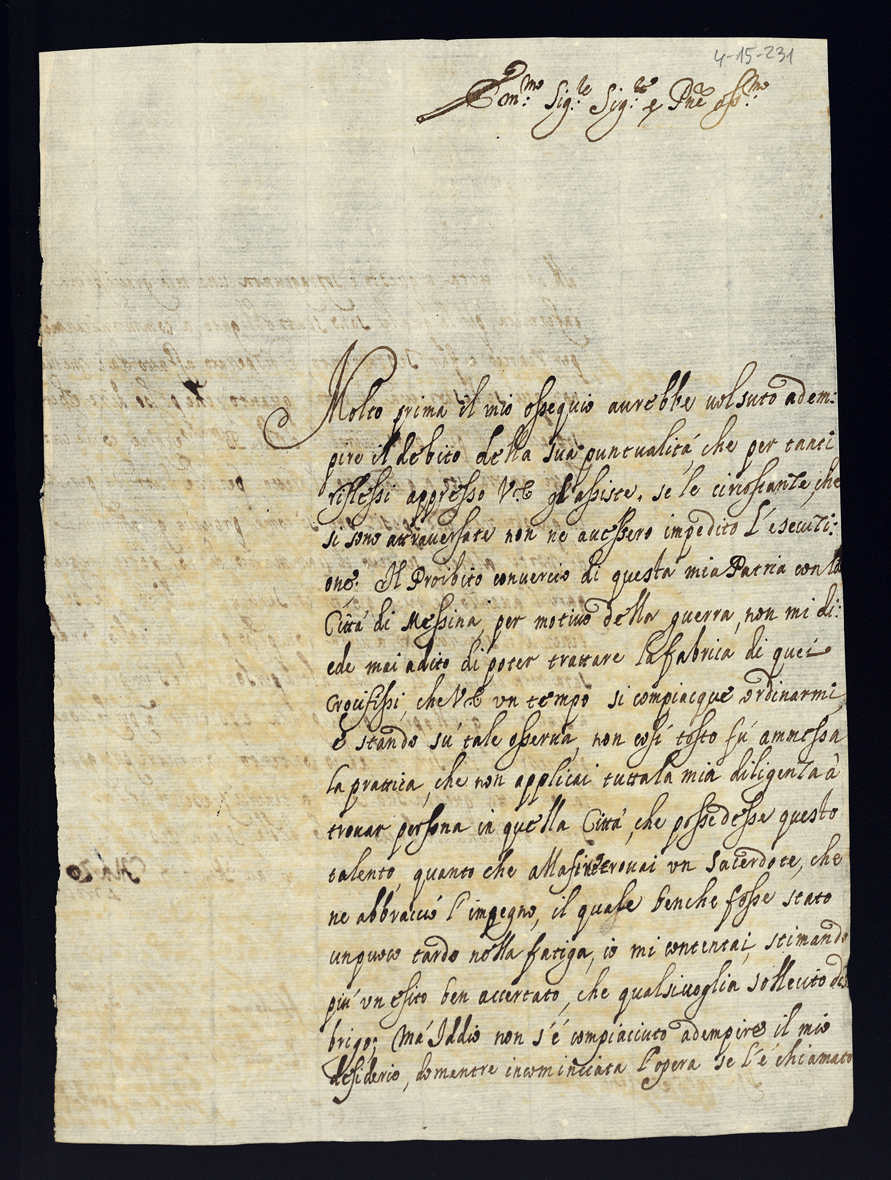 4-15-231
Em:mo Sig:re Sig:re e Pne oss:mo
Molto prima il mio ossequio aurebbe uolsuto adem:
pire il debito della sua puntualitá, che per tanti
riflessi appresso VE gl'assiste, se le circostanze, che
si sono attrauersate non ne auessero impedito l'esecuti:
one. Il Proibito comercio di questa mia Patria con la
Cittá di Messina, per motiuo della guerra, non mi di:
ede mai adito di poter trattare la fabrica di quei
Crocifissi, che VE un tempo si compiacque ordinarmi,
e stando sú tale osserua, non cosí tosto fú ammessa
la prattica, che non applicai tutta la mia diligenza á
trouar persona in quella Cittá, che possedesse questo
talento, quanto che alla fine trouai un Sacerdote, che
ne abbracció l'impegno, il quale benche fosse stato
unpoco tardo nella fatiga, io mi contentai, stimando
piú un esito ben accertato, che qualsiuoglia sollecito dis
brigo; Má Iddio non s'é compiaciuto adempire il mio
desiderio, domentre incominciata l'opera se l'é chiamato